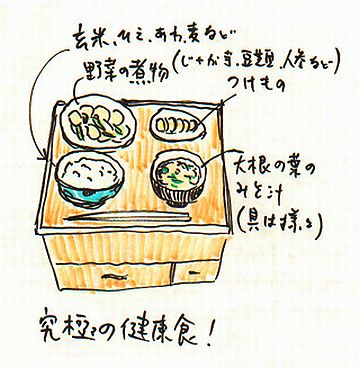 玄米、ひえ、あわ、麦など
野菜の煮物
(じゃが芋、豆類、人参など)
つけもの
大根の葉の
みそ汁
(具は様々)
究極の健康食!